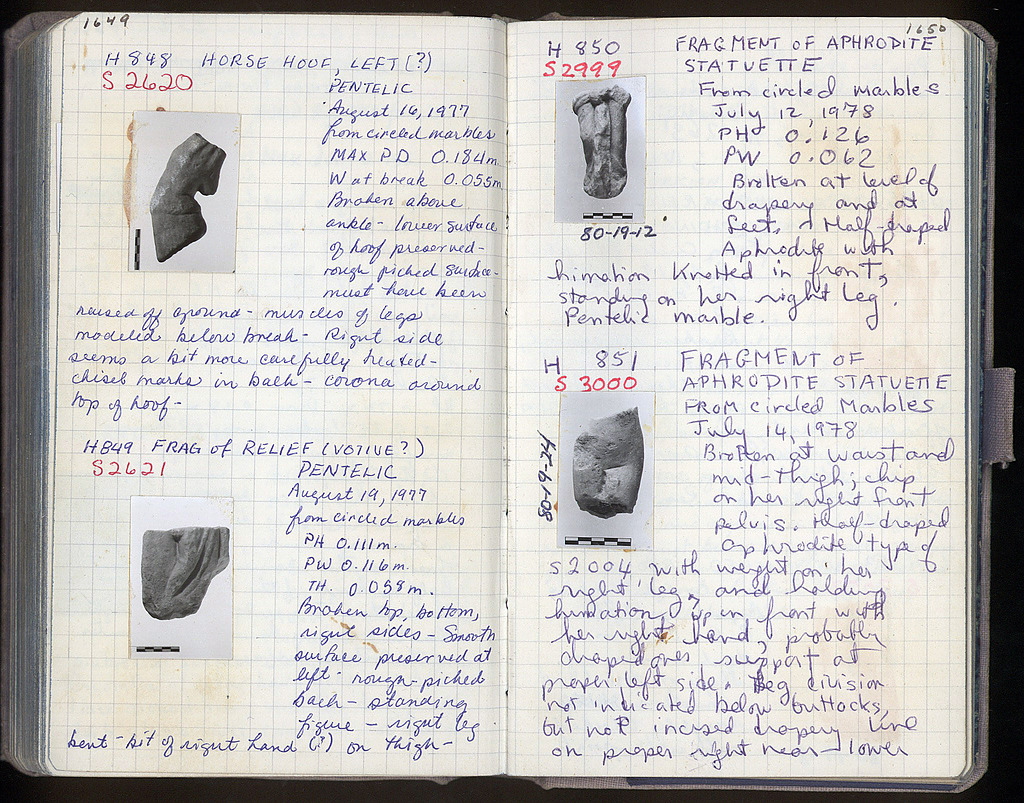 1649
H 848 HORSE HOOF, LEFT (?)
S 2620
PENTELIC
August 16, 1977
from circled marbles
MAX PD 0.184m
W at break 0.055m
Broken above
ankle - lower surface
of hoof preserved -
rough picked surface -
must have been
raised off ground - muscles of legs
modeled below break - Right side
seems a bit more carefully treated -
chisel marks in back - corona around
top of hoof -
H849 FRAG of RELIEF (VOTIVE?)
S2621
PENTELIC
August 19, 1977
from circled marbles
PH 0.111m.
PW 0.116m.
TH. 0.058m.
Broken top, bottom,
right sides - Smooth
surface preserved at
left - rough-picked
back - standing
figure - right leg
bent - bit of right hand (?) on thigh -
1650
H 850 FRAGMENT OF APHRODITE
S2999 STATUETTE
From circled marbles
July 12, 1978
PH 0.126
PW 0.062
Broken at level of
drapery and at
feet. Half-draped
Aphrodite with
himation knotted in front,
standing on her right leg.
Pentelic marble.
80-19-12
H 851 FRAGMENT OF
S 3000 APHRODITE STATUETTE
FROM circled Marbles
July 14, 1978
Broken at waist and
mid-thigh; chip
on her right front
pelvis. Half-draped
Aphrodite type of
S2004 with weight on her
right leg, and holding
himation up in front with
her right hand, probably
draped over support at
proper left side. Leg division
not indicated below buttocks,
but not incised drapery line
on proper right near lower
80-19-24